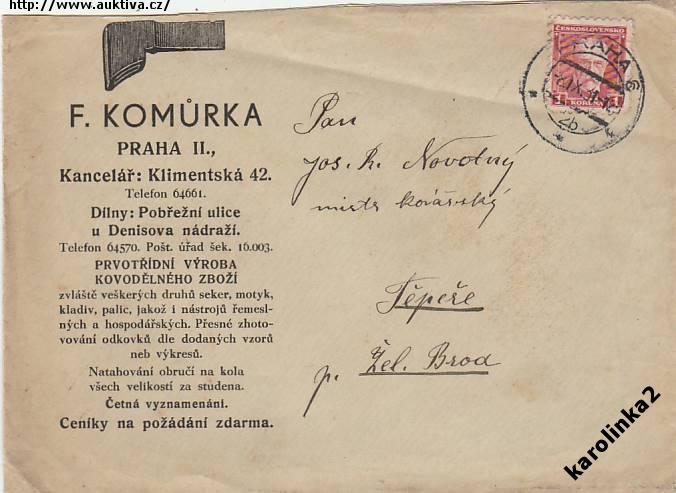 http://www.auktiva.cz/
F. KOMŮRKA
PRAHA II.,
Kancelář: Klimentská 42.
Telefon 64661.
Dílny: Pobřežní ulice
u Denisova nádraží.
Telefon 64570. Pošt. úřad šek. 16.003.
PRVOTŘÍDNÍ VÝROBA
KOVODĚLNÉHO ZBOŽÍ
zvláště veškerých druhů seker, motyk,
kladiv, palic, jakož i nástrojů řemesl-
ných a hospodářských. Přesné zhoto-
vování odkovků dle dodaných vzorů
neb výkresů.
Natahování obručí na kola
všech velikostí za studena.
Četná vyznamenání.
Ceníky na požádání zdarma.
ČESKOSLOVENSKO
1 KORUNA 1
PRAHA
2b
Pan
Jos. R. Novotný
mistr kovářský
Těpeře
p. Žel. Brod
karolinka2